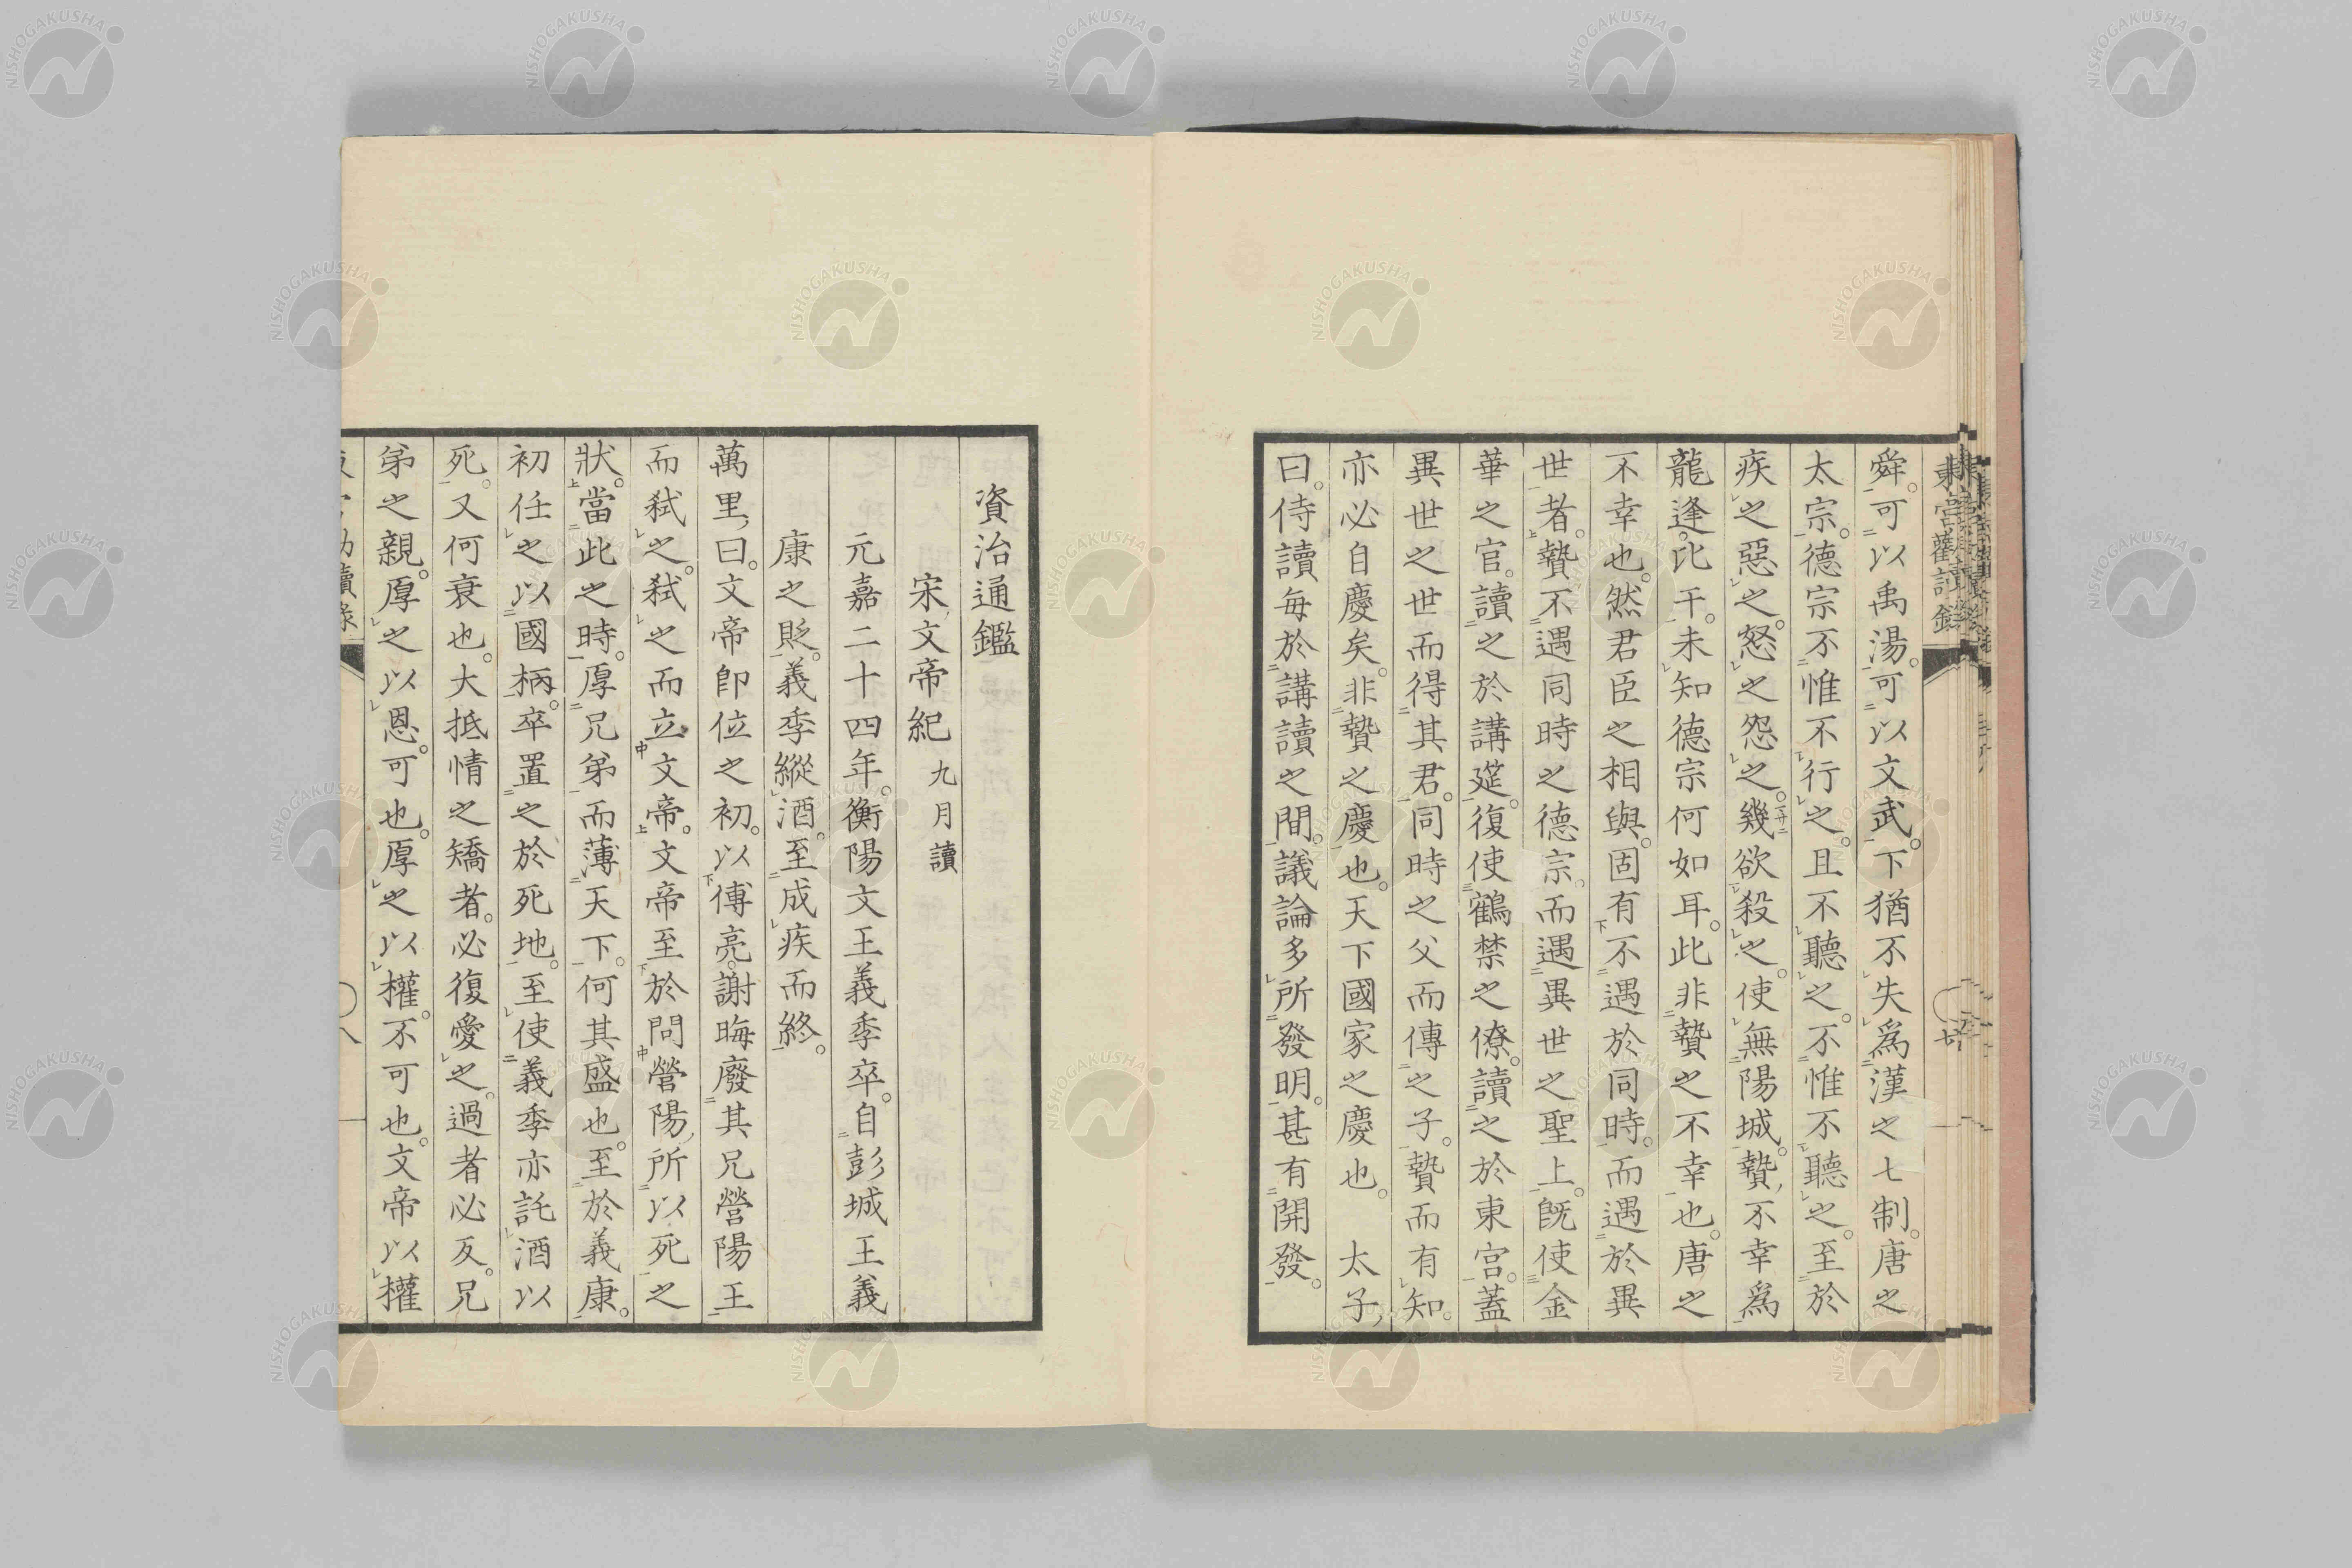 東宮勸讀錄
舜。可以禹湯。可以文武。下猶不失爲漢之七制。唐之
太宗。德宗不惟不行之。且不聽之。不惟不聽之。至於
疾之惡之。怒之怨之。幾欲殺之。使無陽城。贄、不幸爲
龍逢比干。未知德宗何如耳。此非贄之不幸也。唐之
不幸也。然君臣之相與。固有不遇於同時。而遇於異
世者。贄不遇同時之德宗。而遇異世之聖上。旣使金
華之官。讀之於講筵。復使鶴禁之僚。讀之於東宮。蓋
異世之世而得其君。同時之父而傳之子。贄而有知。
亦必自慶矣。非贄之慶也。天下國家之慶也。 太子、
曰。侍讀每於講讀之間。議論多所發明。甚有開發。
資治通鑑
宋、文帝紀 九月讀
元嘉二十四年。衡陽文王義季卒。自彭城王義
康之貶。義季縱酒。至成疾而終。
萬里、曰。文帝卽位之初。以傅亮。謝晦廢其兄營陽王
而弑之。弑之而立文帝。文帝至於問營陽、所以死之
狀。當此之時。厚兄弟而薄天下。何其盛也。至於義康。
初任之以國柄。卒置之於死地。至使義季亦託酒以
死。又何衰也。大抵情之矯者。必復愛之。過者必反。兄
弟之親。厚之以恩。可也。厚之以權。不可也。文帝以權